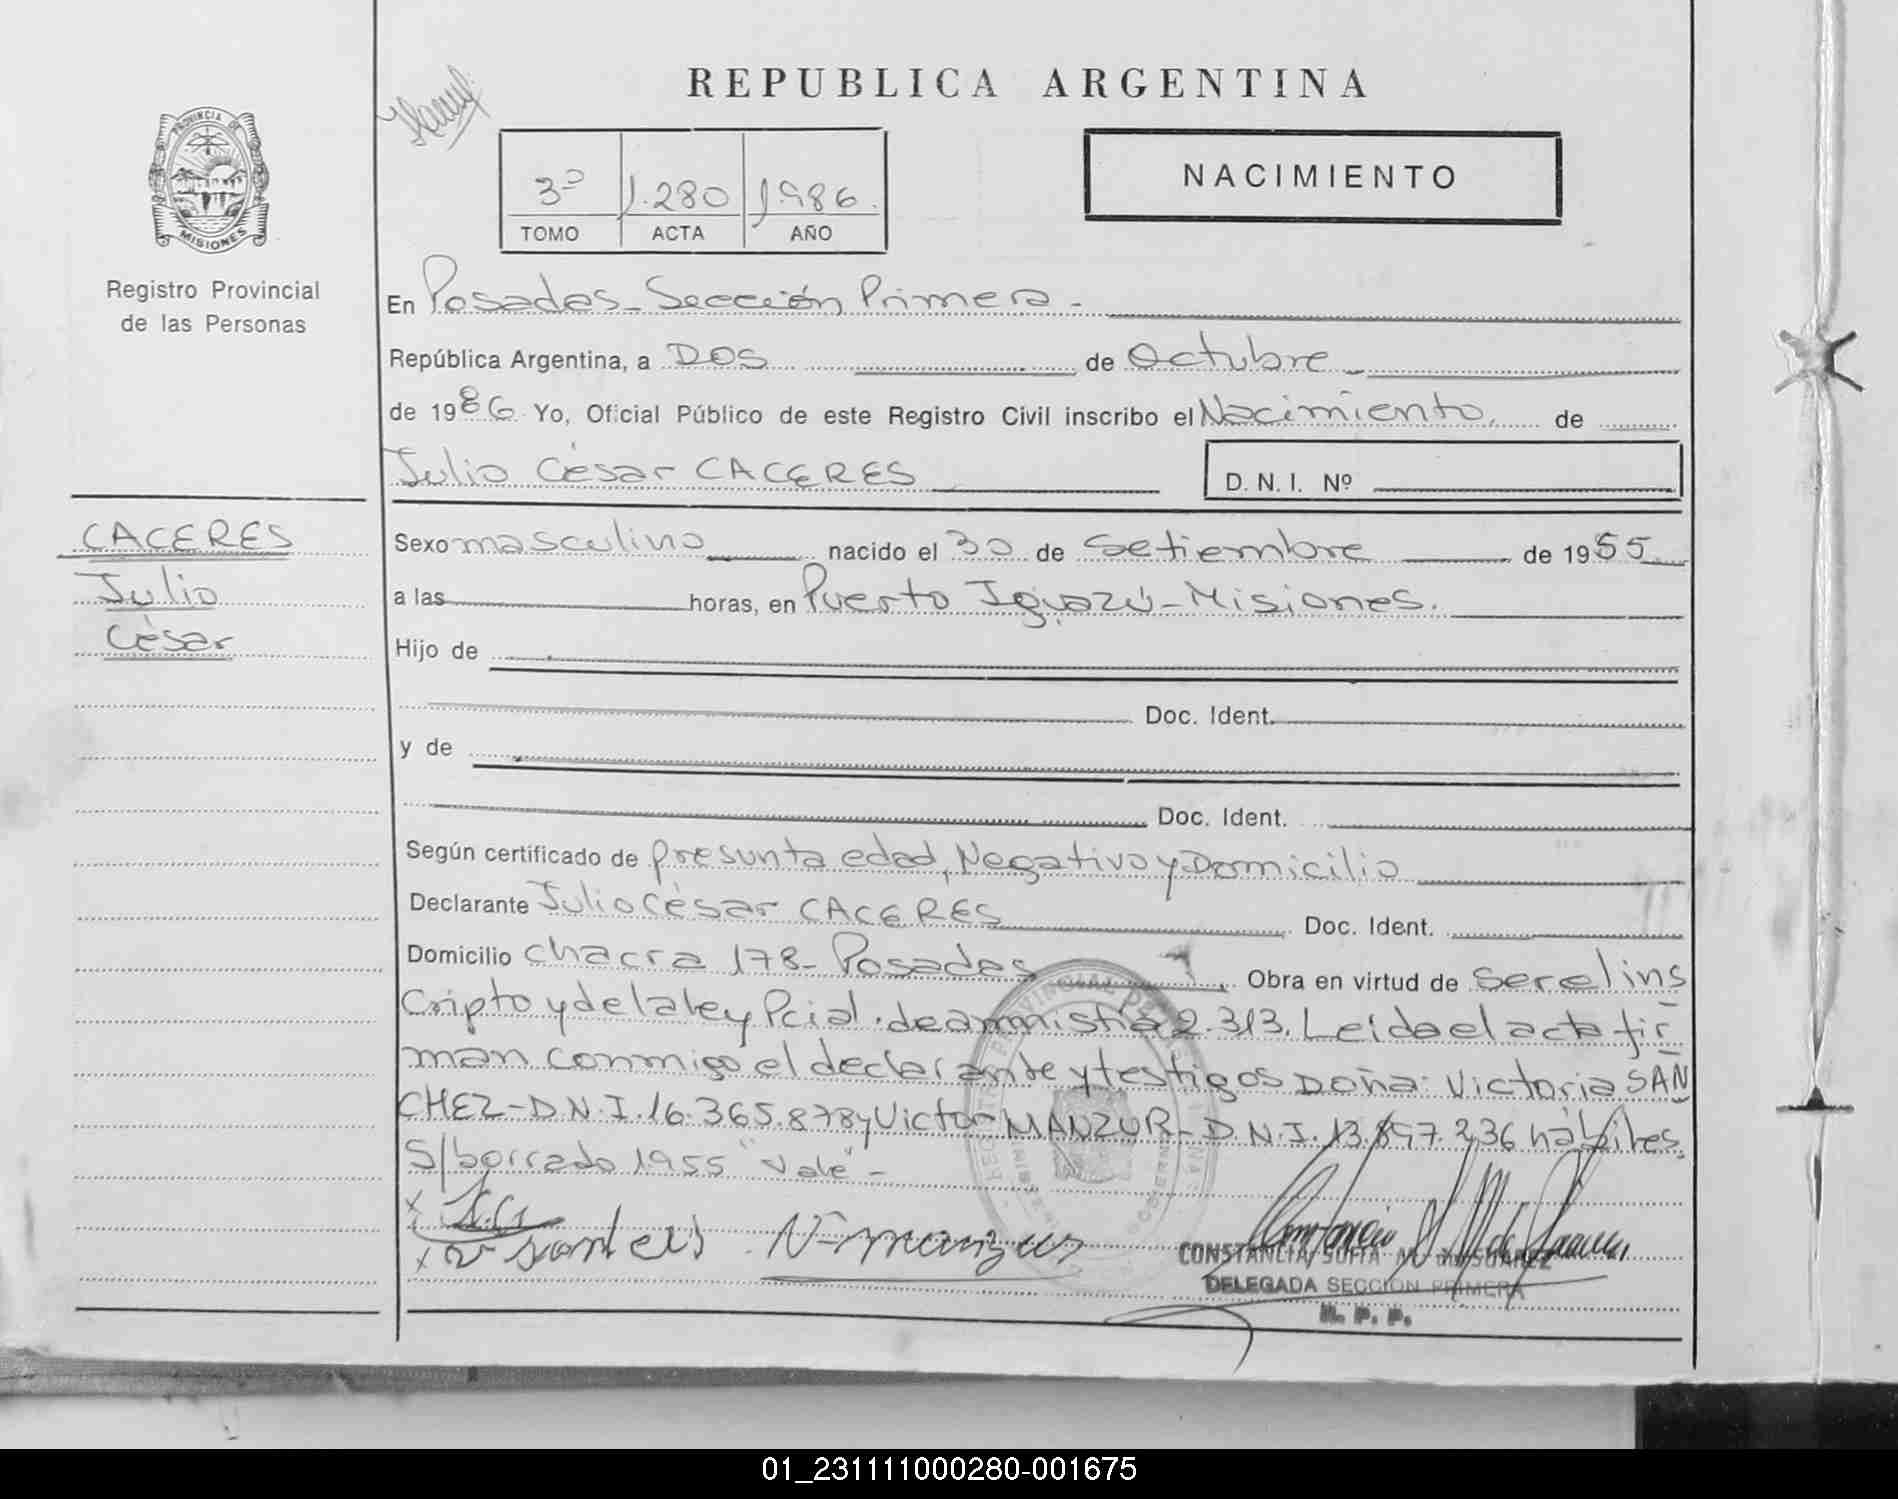 REPUBLICA ARGENTINA
PROVINCIA DE
MISIONES
Registro Provincial
de las Personas
3º 1.280 1.986.
TOMO ACTA AÑO
NACIMIENTO
En Posadas - Sección Primera -
República Argentina, a DOS de Octubre
de 1986 Yo, Oficial Público de este Registro Civil inscribo el Nacimiento, de
Julio César CACERES
D. N. I. Nº
CACERES
Julio
César
Sexo masculino nacido el 30 de Setiembre de 1955
a las horas, en Puerto Iguazú - Misiones.
Hijo de
Doc. Ident.
y de
Doc. Ident.
Según certificado de presunta edad, Negativo y Domicilio
Declarante Julio César CACERES Doc. Ident.
Domicilio chacra 178 - Posadas Obra en virtud de ser el ins
cripto y de la ley Pcial. de amnistia 2.313. Leida el acta fir
man conmigo el declarante y testigos Doña: Victoria SAN
CHEZ - D.N.I. 16.365.878 y Victor MANZUR - D.N.I. 13.897.236 hábiles.
S/borrado 1955 "Vale" -
CONSTANCIA SOFIA M. de SUAREZ
DELEGADA SECCION PRIMERA
R. P. P.
01_231111000280-001675